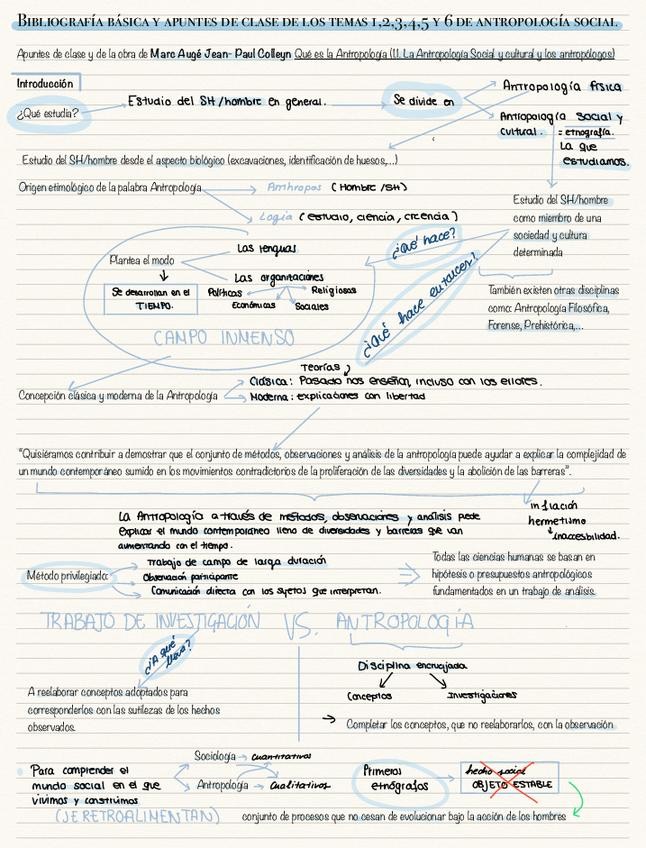 BIBLIOGRAFÍA BÁSICA Y APUNTES DE CLASE DE LOS TEMAS 1,2,3,4,5 Y 6 DE ANTROPOLOGÍA SOCIAL.
Apuntes de clase y de la obra de Marc Augé Jean- Paul Colleyn Qué es la Antropología (1.1. La Antropología Social y cultural y los antropólogos)
Introducción
¿Qué estudia?
Estudio del SH/hombre en general.
Se divide en
Antropología física
Antropología Social y
cultural. = etnografía.
La que
estudiamos.
Estudio del SH/hombre desde el aspecto biológico (excavaciones, identificación de huesos,...)
Origen etimológico de la palabra Antropología
Anthropos (Hombre/SH)
Logia (estudio, ciencia, creencia)
Estudio del SH/hombre
como miembro de una
sociedad y cultura
determinada
¿Qué hace?
¿Qué hace entonces?
Plantea el modo
Las lenguas
Las organizaciones
Políticas
Económicas
Sociales
Religiosas
Se desarrollan en el
TIEMPO.
CAMPO INMENSO
También existen otras disciplinas
como: Antropología Filosófica,
Forense, Prehistórica,...
Teorías
Concepción clásica y moderna de la Antropología
Clásica: Pasado nos enseña, incluso con los errores.
Moderna: explicaciones con libertad
"Quisiéramos contribuir a demostrar que el conjunto de métodos, observaciones y análisis de la antropología puede ayudar a explicar la complejidad de
un mundo contemporáneo sumido en los movimientos contradictorios de la proliferación de las diversidades y la abolición de las barreras".
La Antropología a través de métodos, observaciones y análisis puede
explicar el mundo contemporáneo lleno de diversidades y barreras que van
aumentando con el tiempo.
inflación
hermetismo
inaccesibilidad.
Método privilegiado:
Trabajo de campo de larga duración
Observación participante
Comunicación directa con los sujetos que interpretan.
Todas las ciencias humanas se basan en
hipótesis o presupuestos antropológicos
fundamentados en un trabajo de análisis.
TRABAJO DE INVESTIGACIÓN VS. ANTROPOLOGÍA
¿A qué
lleva?
A reelaborar conceptos adoptados para
corresponderlos con las sutilezas de los hechos
observados.
Disciplina encrucijada
Conceptos
Investigaciones
Completar los conceptos, que no reelaborarlos, con la observación
Para comprender el
mundo social en el que
vivimos y construimos
Sociología → cuantitativos
Antropología → cualitativos
(SE RETROALIMENTAN)
Primeros
etnógrafos
hecho social
OBJETO ESTABLE
conjunto de procesos que no cesan de evolucionar bajo la acción de los hombres